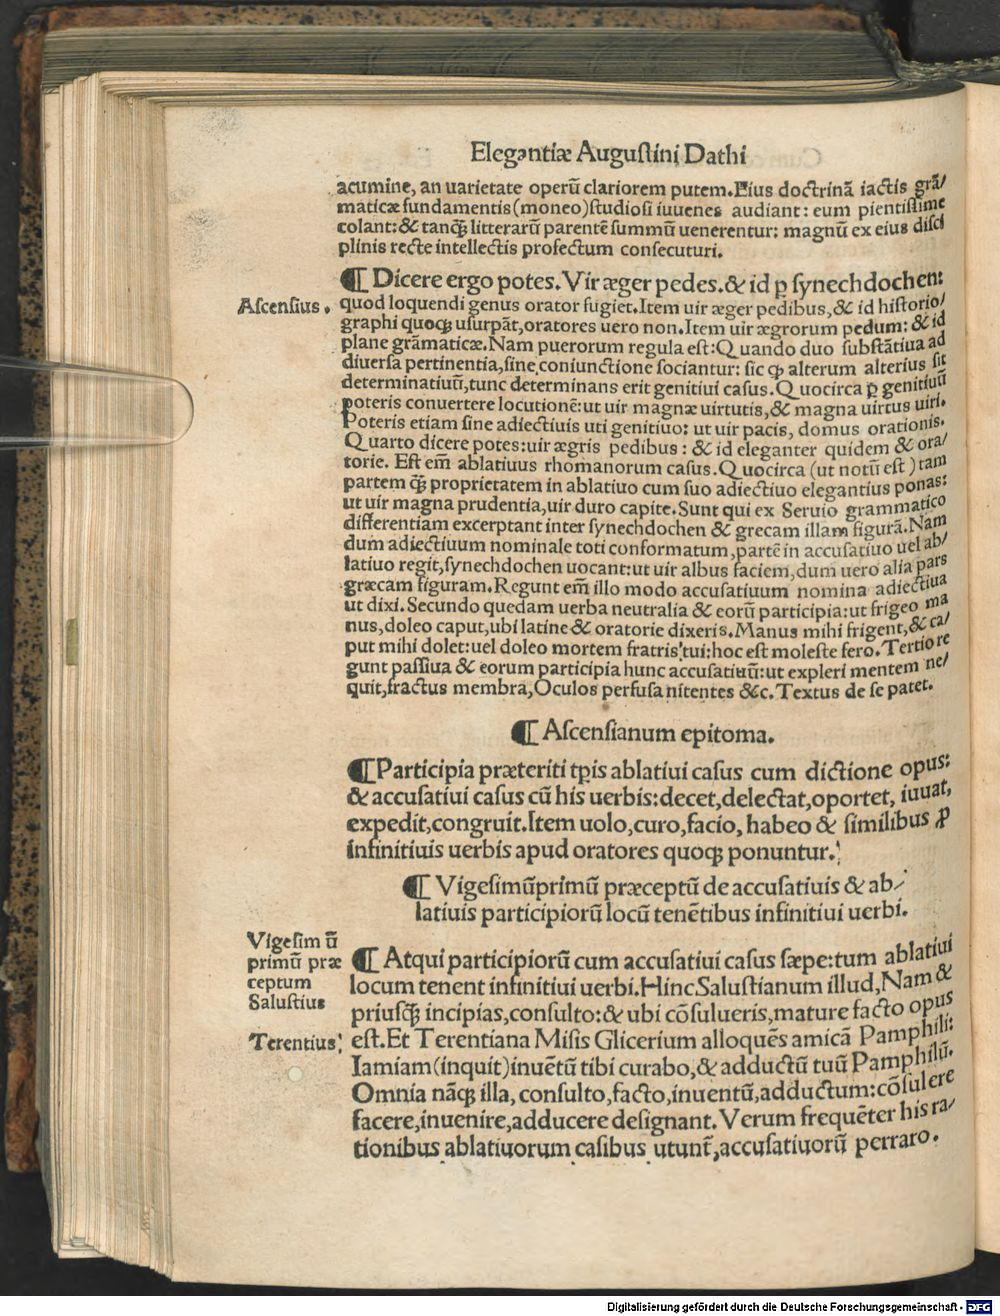 Elegantiæ Auguſtini Dathi
acumine, an uarietate operũ clariorem putem. Eius doctrinã iactis grã/
maticæ fundamentis (moneo) ſtudioſi iuuenes audiant: eum pientiſſime
colant: & tanq̃ litterarũ parentẽ ſummũ uenerentur: magnũ ex eius diſci
plinis recte intellectis profectum conſecuturi.
¶ Dicere ergo potes. Vir æger pedes. & id ꝑ ſynechdochen:
Aſcenſius.
quod loquendi genus orator fugiet. Item uir æger pedibus, & id hiſtorio/
graphi quoqꝫ uſurpãt, oratores uero non. Item uir ægrorum pedum: & id
plane grãmaticæ. Nam puerorum regula eſt: Quando duo ſubſtãtiua ad
diuerſa pertinentia, ſine coniunctione ſociantur: ſic ꝙ alterum alterius ſit
determinatiuũ, tunc determinans erit genitiui caſus. Quocirca ꝑ genitiuũ
poteris conuertere locutionẽ: ut uir magnæ uirtutis, & magna uirtus uiri.
Poteris etiam ſine adiectiuis uti genitiuo: ut uir pacis, domus orationis.
Quarto dicere potes: uir ægris pedibus: & id eleganter quidem & ora/
torie. Eſt em̃ ablatiuus rhomanorum caſus. Quocirca (ut notũ eſt) tam
partem q̃ꝫ proprietatem in ablatiuo cum ſuo adiectiuo elegantius ponas:
ut uir magna prudentia, uir duro capite. Sunt qui ex Seruio grammatico
differentiam excerptant inter ſynechdochen & grecam illam figurã. Nam
dum adiectiuum nominale toti conformatum, partẽ in accuſatiuo uel ab/
latiuo regit, ſynechdochen uocant: ut uir albus faciem, dum uero alia pars
græcam figuram. Regunt em̃ illo modo accuſatiuum nomina adiectiua
ut dixi. Secundo quedam uerba neutralia & eorũ participia: ut frigeo ma
nus, doleo caput, ubi latine & oratorie dixeris. Manus mihi frigent, & ca/
put mihi dolet: uel doleo mortem fratris tui: hoc eſt moleſte fero. Tertio re
gunt paſſiua & eorum participia hunc accuſatiuũ: ut expleri mentem ne/
quit, fractus membra, Oculos perfuſa nitentes &c. Textus de ſe patet.
¶ Aſcenſianum epitoma.
¶ Participia præteriti tꝑis ablatiui caſus cum dictione opus:
& accuſatiui caſus cũ his uerbis: decet, delectat, oportet, iuuat,
expedit, congruit. Item uolo, curo, facio, habeo & ſimilibus ꝓ
infinitiuis uerbis apud oratores quoqꝫ ponuntur.
¶ Vigeſimũprimũ præceptũ de accuſatiuis & ab/
latiuis participiorũ locũ tenẽtibus infinitiui uerbi.
Vigeſim ũ
primũ præ
ceptum
Saluſtius
¶ Atqui participiorũ cum accuſatiui caſus ſæpe: tum ablatiui
locum tenent infinitiui uerbi. Hinc Saluſtianum illud, Nam &
priuſq̃ꝫ incipias, conſulto: & ubi cõſulueris, mature facto opus
Terentius.
eſt. Et Terentiana Miſis Glicerium alloquẽs amicã Pamphili:
Iamiam (inquit) inuẽtũ tibi curabo, & adductũ tuũ Pamphilũ.
Omnia nãqꝫ illa, conſulto, facto, inuentũ, adductum: cõſulere
facere, inuenire, adducere deſignant. Verum frequẽter his ra/
tionibus ablatiuorum caſibus utunt̃, accuſatiuorũ perraro.
Digitalisierung gefördert durch die Deutsche Forschungsgemeinschaft - DFG